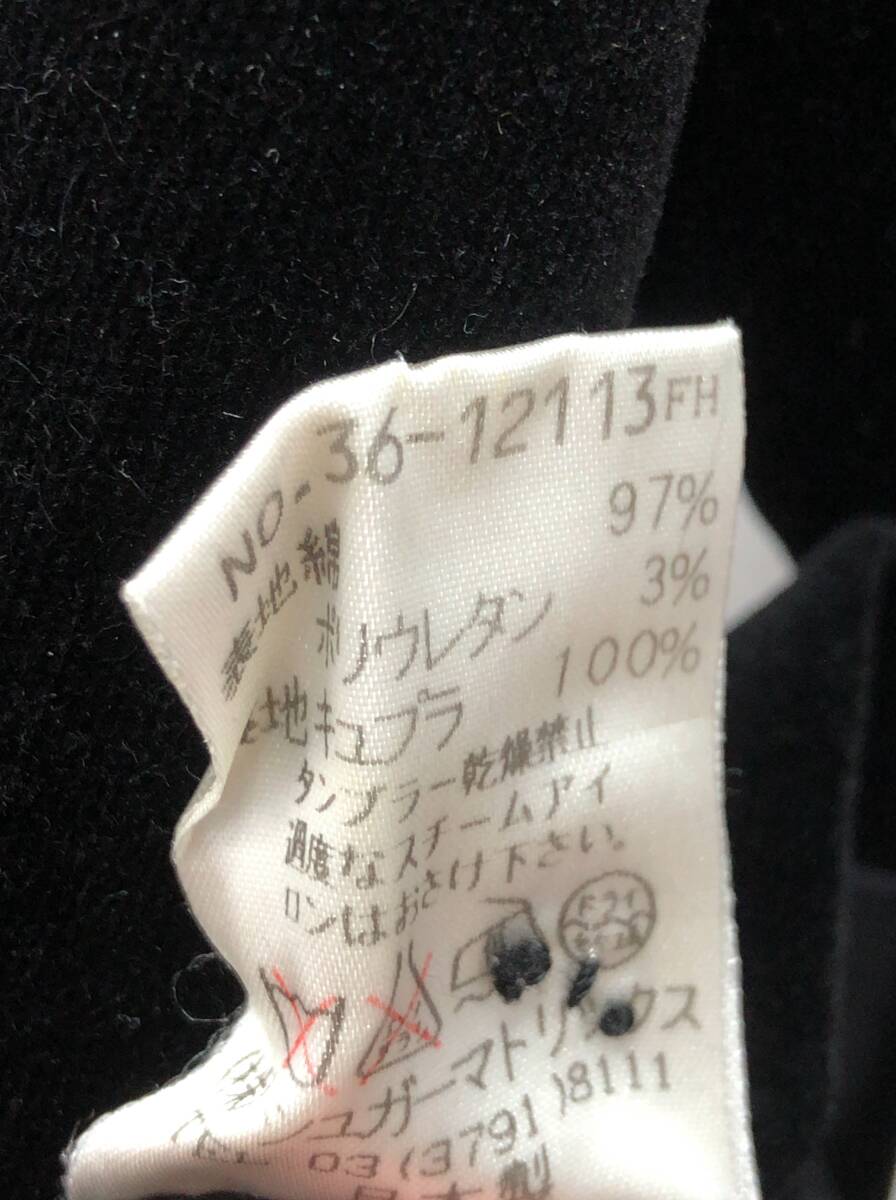 NO-36-12113FH
表地 綿 97%
ポリウレタン 3%
地 キュプラ 100%
タンブラー乾燥禁止
過度なスチームアイ
ロンはおさけ下さい。
ドライ
(株)シュガーマトリックス
TEL 03(3791)8111
日本製